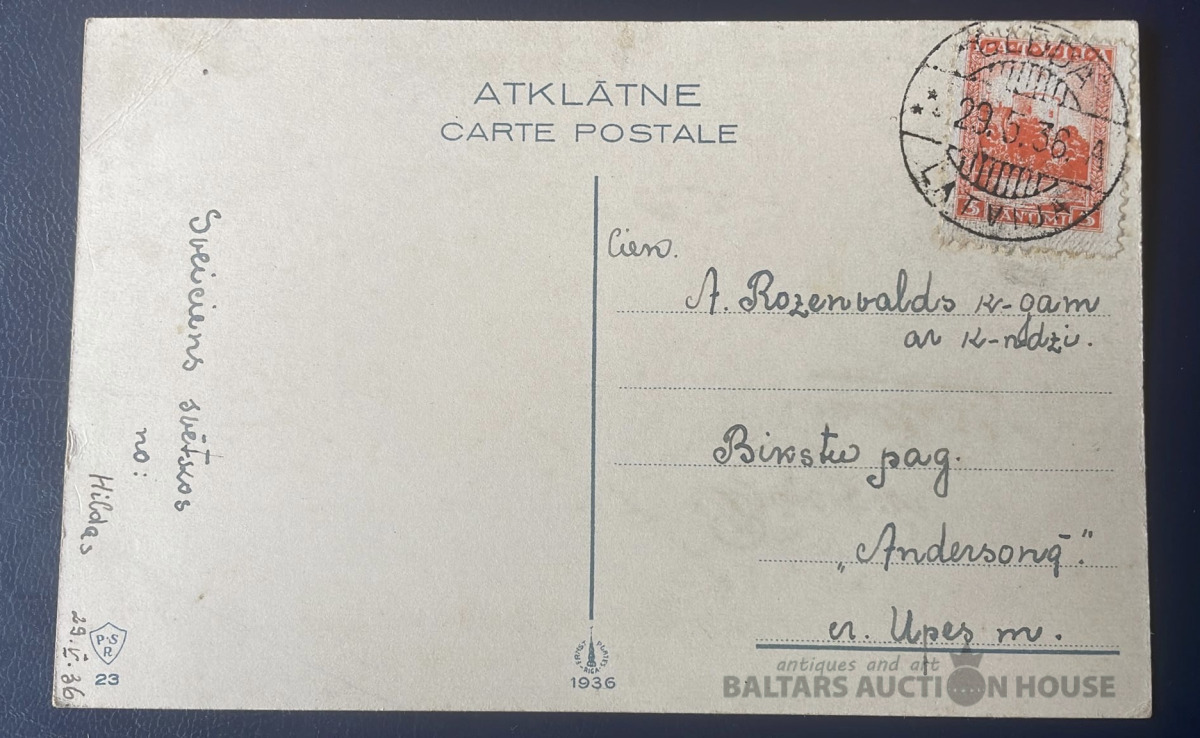 ATKLĀTNE
CARTE POSTALE
29.5.36 A
LATVIJA
5 SANTIMI 5
Sveiciens svētkos
no:
Hildas
29.V.36
Cien.
A. Rozenvalds k-gam
ar k-ndzi.
Bikstu pag.
„Andersonā."
cr. Upes m.
P.S
R
23
ERNST PLATES
RIGA
1936
antiques and art
BALTARS AUCTION HOUSE